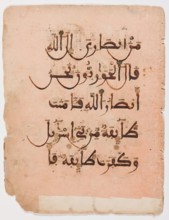 من انصاري الى الله
قال الحواريون نحن
انصار الله فامنت
طايفة من بني اسريل
وكفرت طايفة فا